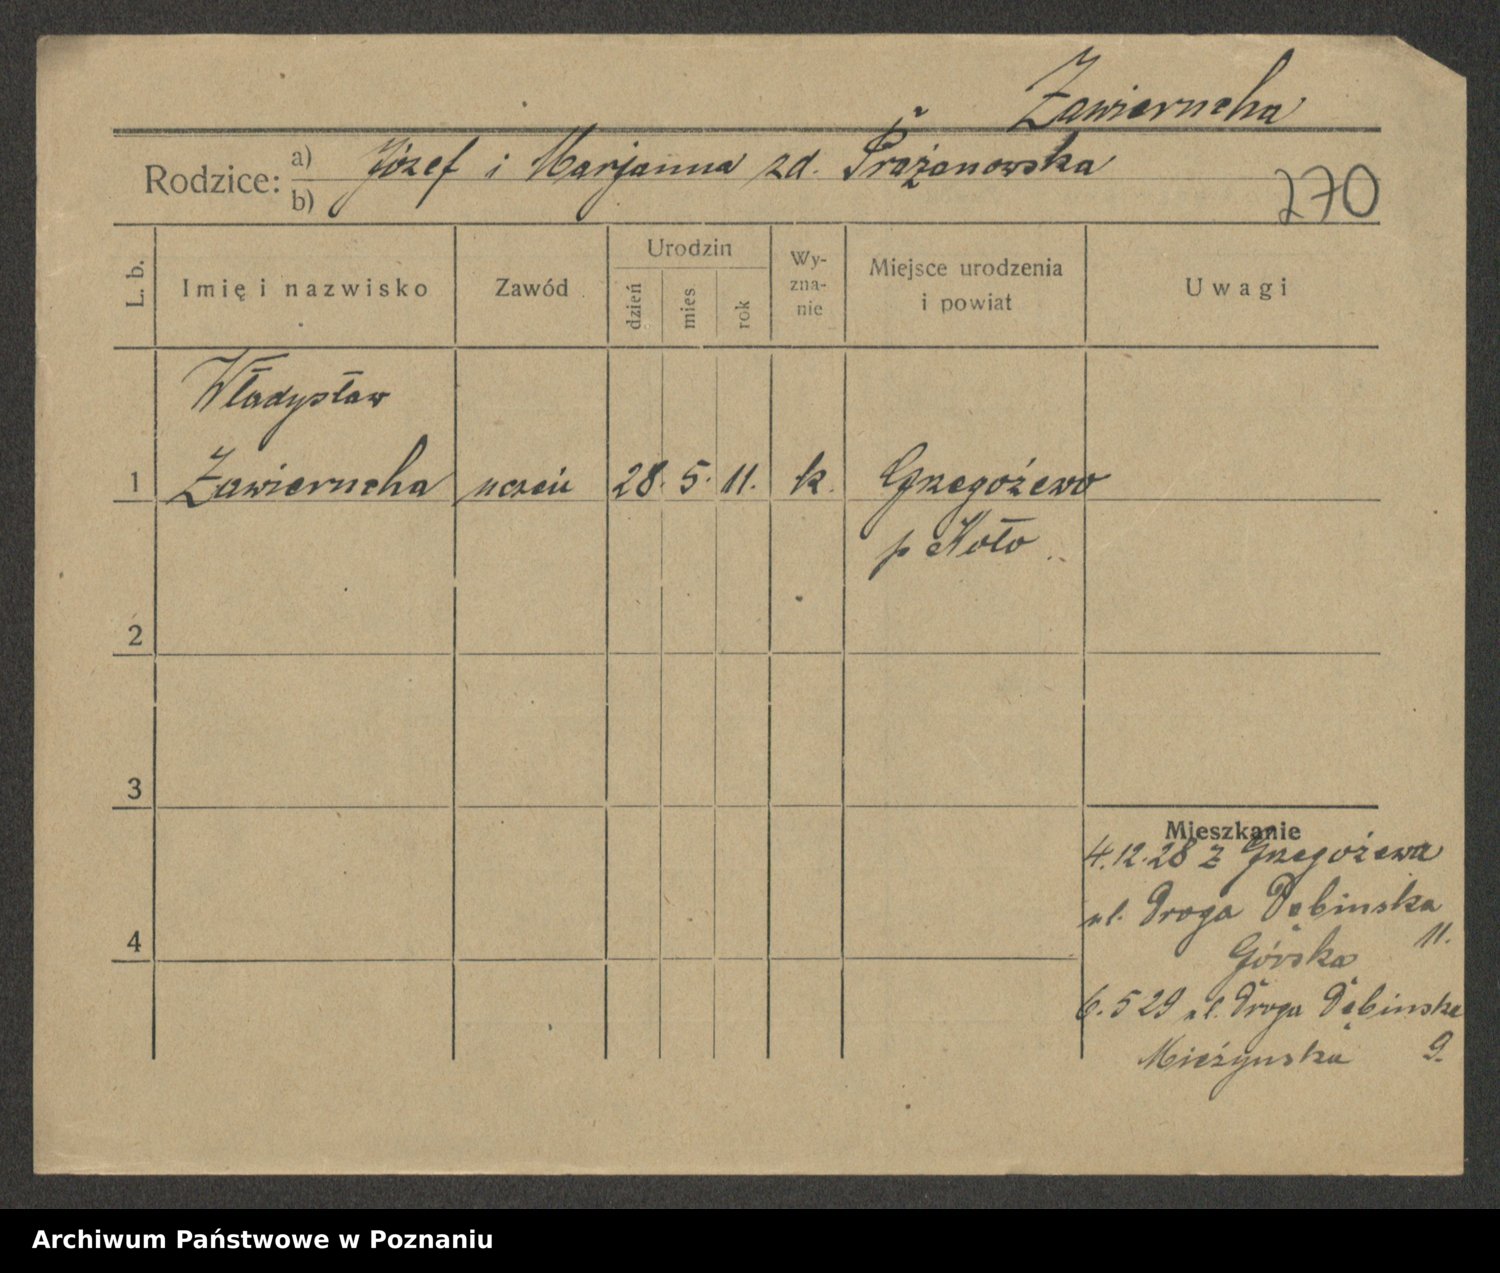 Zawierucha
Rodzice: a) Józef i Marjanna zd. Prażanowska
b)
270
L. b.
Imię i nazwisko
Zawód
Urodzin
dzień
mies
rok
Wy-
zna-
nie
Miejsce urodzenia
i powiat
Uwagi
Władysław
1 Zawierucha uczeń 28. 5. 11. k. Grzegożewo
p Koło
2
3
4
Mieszkanie
4.12.28 z Grzegożewa
ul. Droga Dębinska
11.
Górska
6.5 29 ul. Droga Dębinska
Mieżynska 9.
Archiwum Państwowe w Poznaniu